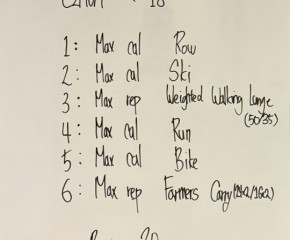 1: Max cal Row
2: Max cal Ski
3: Max rep Weighted Walking Lunge
(50/35)
4: Max cal Run
5: Max cal Bike
6: Max rep Farmers Carry